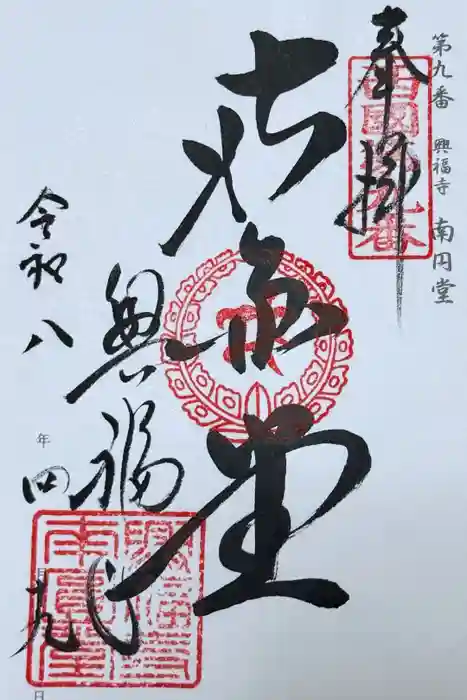 第九番 興福寺 南円堂
奉拝
西國第九番
堂
興福寺
令和八年四月日
興福寺
南圓堂